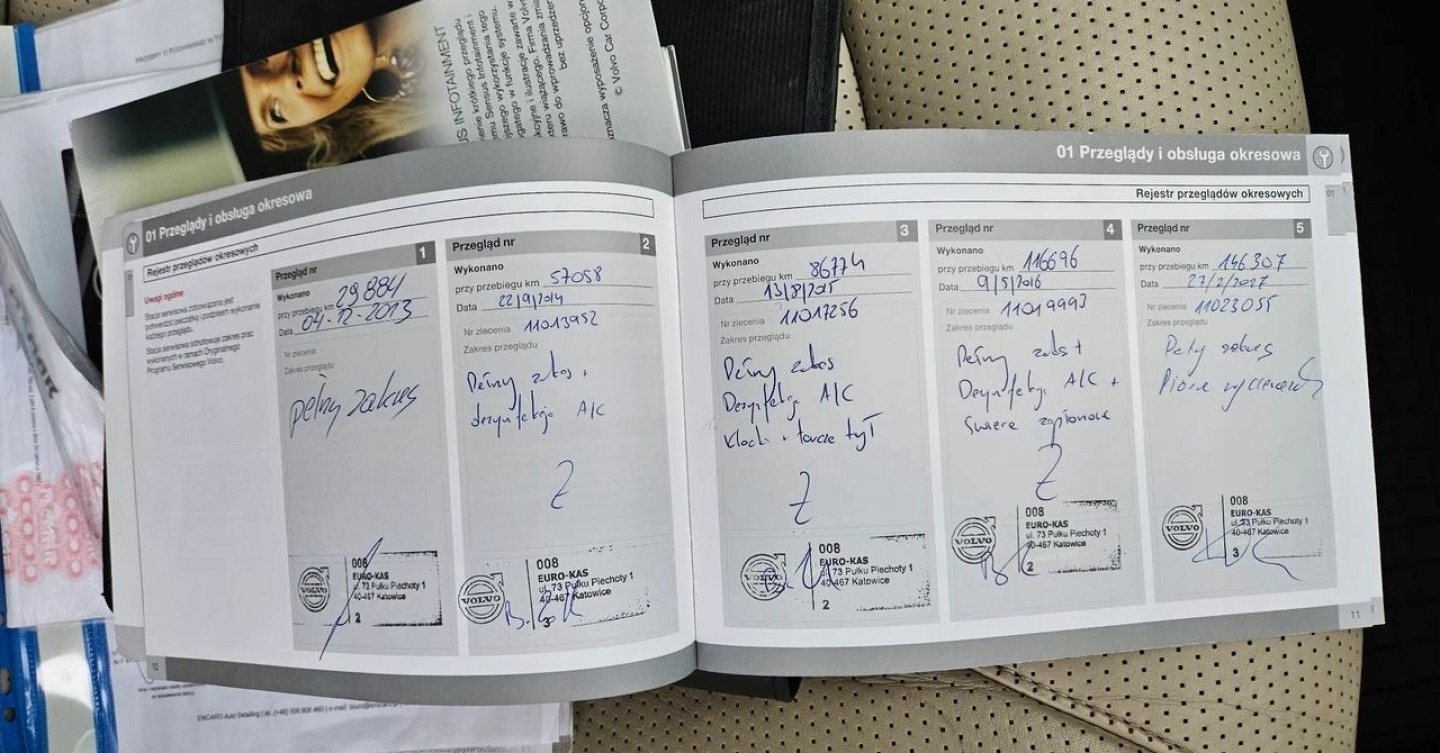 US INFOTAINMENT
© Volvo Car Corpo
01 Przeglądy i obsługa okresowa
Rejestr przeglądów okresowych
Uwagi ogólne
Stacja serwisowa zobowiązana jest
potwierdzić pieczątką i podpisem wykonanie
każdego przeglądu.
Stacja serwisowa odnotowuje zakres prac
wykonanych w ramach Oryginalnego
Programu Serwisowego Volvo.
Przegląd nr 1
Wykonano
przy przebiegu km 29884
Data 04-12-2013
Nr zlecenia
Zakres przeglądu
pełny zakres
008
EURO-KAS
ul. 73 Pułku Piechoty 1
40-467 Katowice
2
VOLVO
Przegląd nr 2
Wykonano
przy przebiegu km 57058
Data 22/9/2014
Nr zlecenia 11013952
Zakres przeglądu
Pełny zakos +
dezynfekcja A/C
008
EURO-KAS
ul. 73 Pułku Piechoty 1
40-467 Katowice
3
VOLVO
10
01 Przeglądy i obsługa okresowa
Rejestr przeglądów okresowych
01
Przegląd nr 3
Wykonano
przy przebiegu km 86774
Data 13/8/2015
Nr zlecenia 11017256
Zakres przeglądu
Pełny zakos
Dezynfekcja A/C
Klocki + tarcze tył
008
EURO-KAS
73 Pułku Piechoty 1
40-467 Katowice
2
VOLVO
Przegląd nr 4
Wykonano
przy przebiegu km 116696
Data 9/5/2016
Nr zlecenia 11019993
Zakres przeglądu
Pełny zakos +
Dezynfekcja A/C +
Świece zapłonowe
008
EURO-KAS
ul. 73 Pułku Piechoty 1
40-467 Katowice
2
VOLVO
Przegląd nr 5
Wykonano
przy przebiegu km 146307
Data 27/2/2017
Nr zlecenia 11023055
Zakres przeglądu
Pełny zakres
Pióra
008
EURO-KAS
ul. 73 Pułku Piechoty 1
40-467 Katowice
3
VOLVO
11
EMCARO Auto Detailing